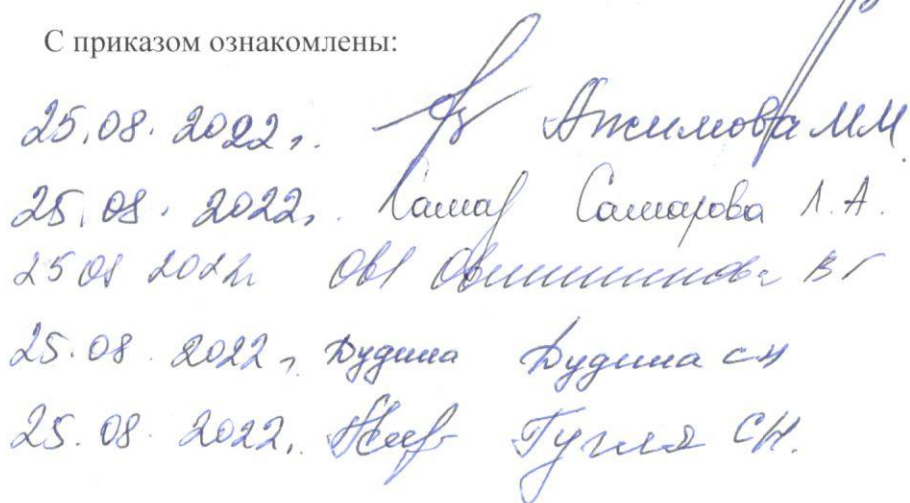 С приказом ознакомлены:
25.08.2022г. Ажимова М.М.
25.08.2022г. Самар Самарова Л.А.
25 08 2022г Овч В Г
25.08.2022г Дудина Дудина СН
25.08.2022г. Гугля СН.